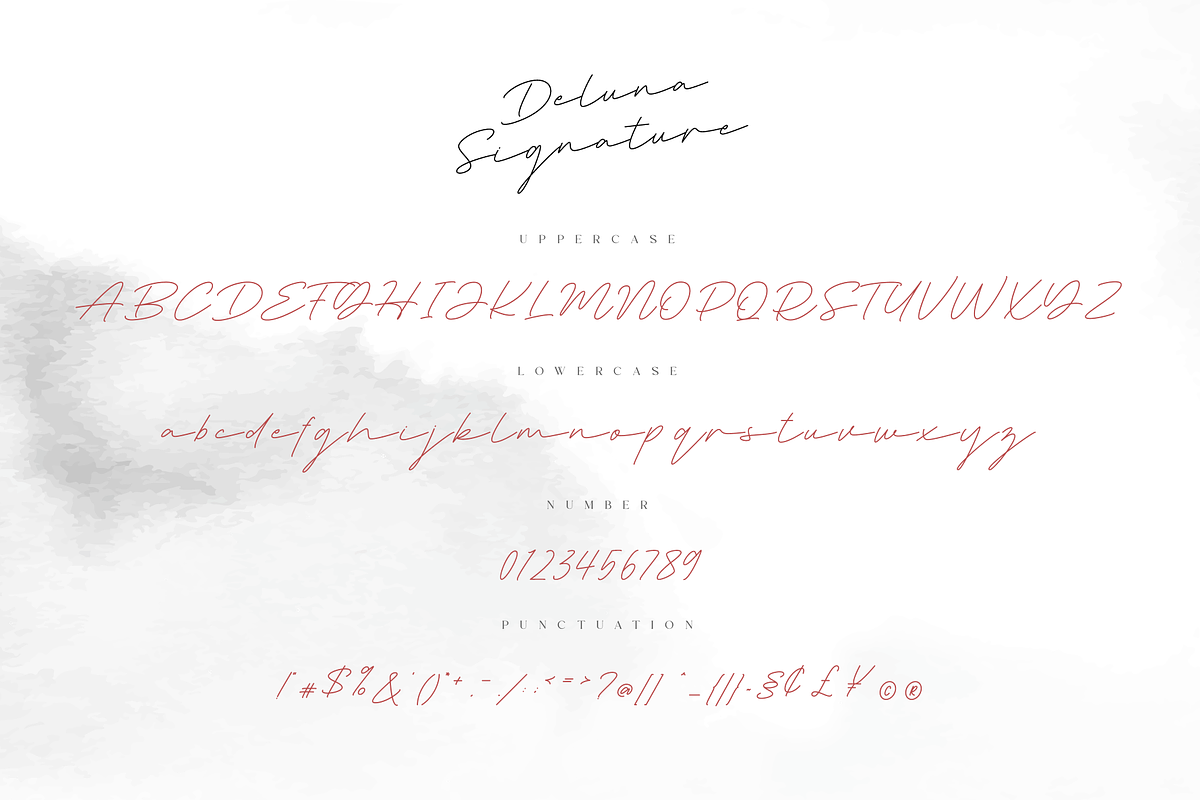 Deluna
Signature
UPPERCASE
ABCDEFGHIJKLMNOPQRSTUVWXYZ
LOWERCASE
abcdefghijklmnopqrstuvwxyz
NUMBER
0123456789
PUNCTUATION
!"#$%&'()*+,-./:;<=>?@[]^_{|}-§¢£¥©®